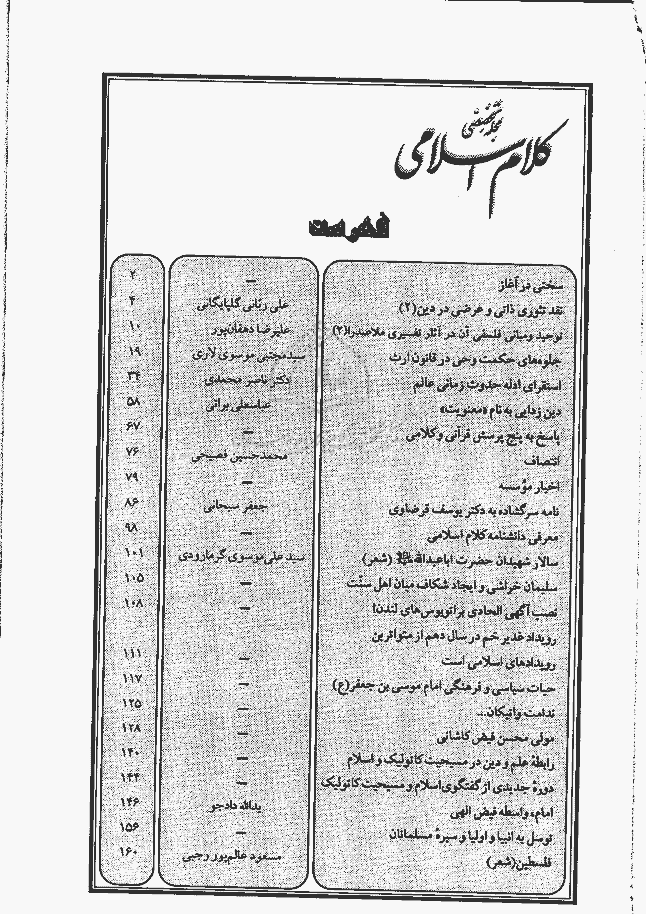 مجله تخصصی
کلام اسلامی
فهرست
سخنی در آغاز — ۲
نقد تئوری ذاتی و عرضی در دین(۲) علی ربانی گلپایگانی ۴
توحید ومبانی فلسفی آن در آثار تفسیری ملاصدرا(۲) علیرضا دهقان‌پور ۱۰
جلوه‌های حکمت وحی در قانون ارث سید مجتبی موسوی لاری ۱۹
استقرای ادله حدوث زمانی عالم دکتر ناصر محمدی ۳۴
دین زدایی به نام «معنویت» عباسعلی براتی ۵۸
پاسخ به پنج پرسش قرآنی و کلامی — ۶۷
انتصاف محمدحسین فصیحی ۷۶
اخبار مؤسسه — ۷۹
نامه سرگشاده به دکتر یوسف قرضاوی جعفر سبحانی ۸۶
معرفی دانشنامه کلام اسلامی — ۹۸
سالار شهیدان حضرت اباعبدالله (شعر) سید علی موسوی گرمارودی ۱۰۱
سلیمان خراشی و ایجاد شکاف میان اهل سنّت — ۱۰۵
نصب آگهی الحادی بر اتوبوس‌های لندن! — ۱۰۸
رویداد غدیر خم در سال دهم از متواترین
رویدادهای اسلامی است — ۱۱۱
حیات سیاسی و فرهنگی امام موسی بن جعفر(ع) — ۱۱۷
ندامت واتیکان... — ۱۲۵
مولی محسن فیض کاشانی — ۱۲۸
رابطهٔ علم و دین در مسیحیت کاتولیک و اسلام — ۱۴۰
دورهٔ جدیدی از گفتگوی اسلام و مسیحیت کاتولیک — ۱۴۴
امام، واسطه فیض الهی یدالله دادجو ۱۴۶
توسل به انبیا و اولیا و سیرهٔ مسلمانان — ۱۵۶
فلسطین(شعر) مسعود عالم‌پور رجبی ۱۶۰